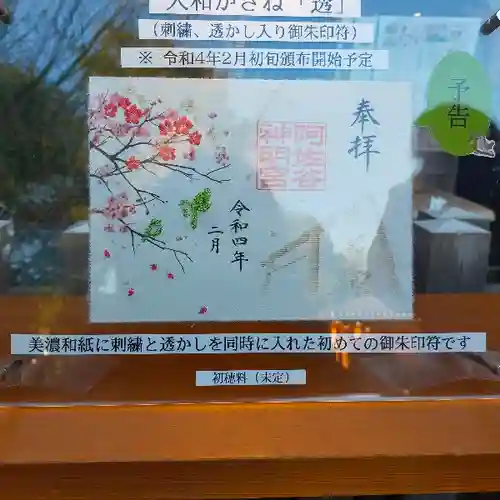 大和がさね「透」
（刺繍、透かし入り御朱印符）
※ 令和4年2月初旬頒布開始予定
予告
奉拝
阿佐谷
神明宮
令和四年
二月
美濃和紙に刺繍と透かしを同時に入れた初めての御朱印符です
初穂料（未定）